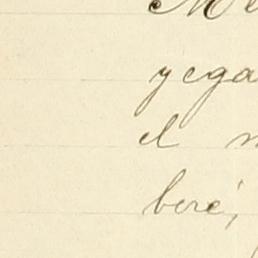 Me
y ega
el n
beré,